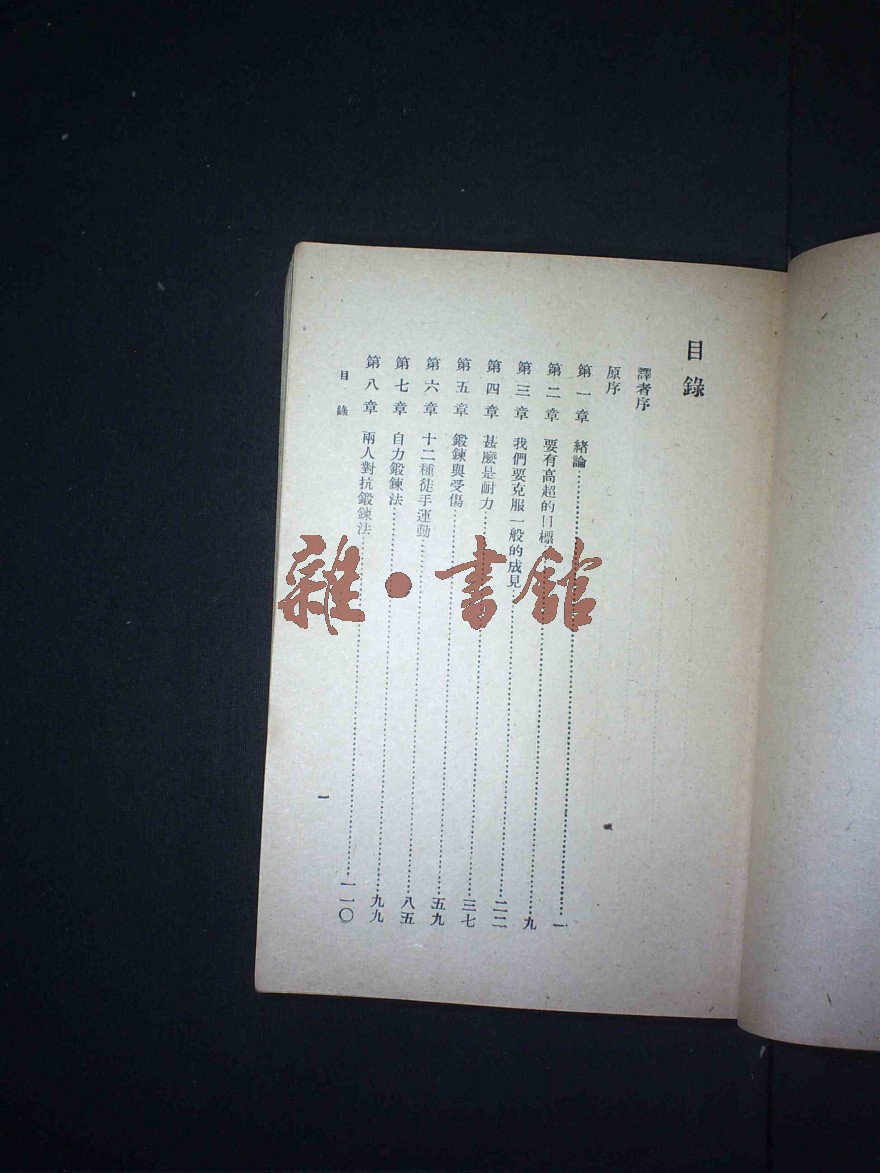 目錄
譯者序
原序
第一章 緒論……一
第二章 要有高超的目標……九
第三章 我們要克服一般的成見……二二
第四章 甚麼是耐力……三七
第五章 鍛鍊與受傷……五九
第六章 十二種徒手運動……八五
第七章 自力鍛鍊法……九九
第八章 兩人對抗鍛鍊法……一一〇
目錄
一
雜·書館